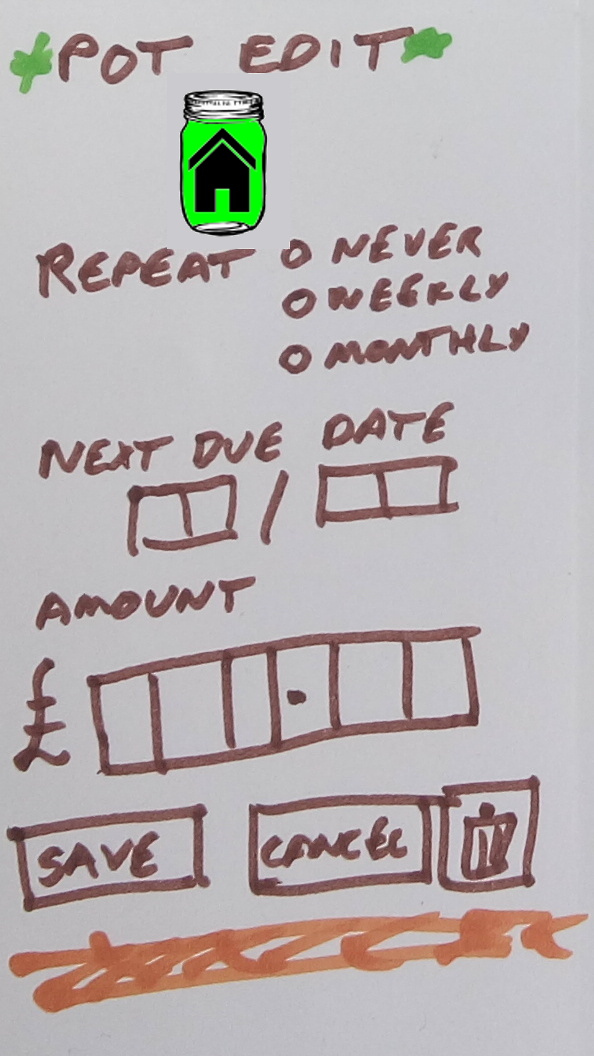 POT EDIT
REPEAT O NEVER
O WEEKLY
O MONTHLY
NEXT DUE DATE
/
AMOUNT
£ .
SAVE CANCEL